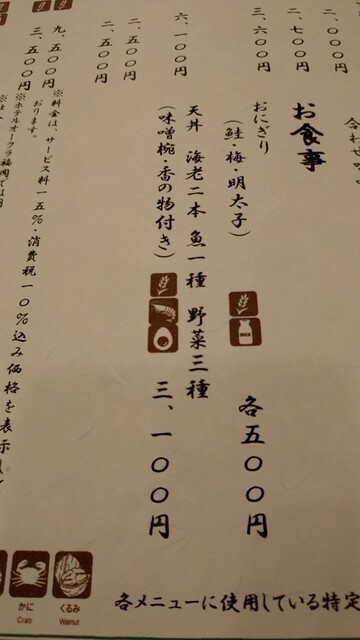 合わせ
二、〇〇〇円
二、七〇〇円
三、六〇〇円
お食事
おにぎり
(鮭・梅・明太子)
MILK
各五〇〇円
六、一〇〇円
天丼 海老二本 魚一種 野菜三種
(味噌椀・香の物付き)
三、一〇〇円
二、五〇〇円
二、五〇〇円
九、五〇〇円
三、五〇〇円
※料金は、サービス料一五%・消費税一〇%込み価格を表示して
おります。
※ホテルオークラ福岡では
かに
Crab
くるみ
Walnut
各メニューに使用している特定